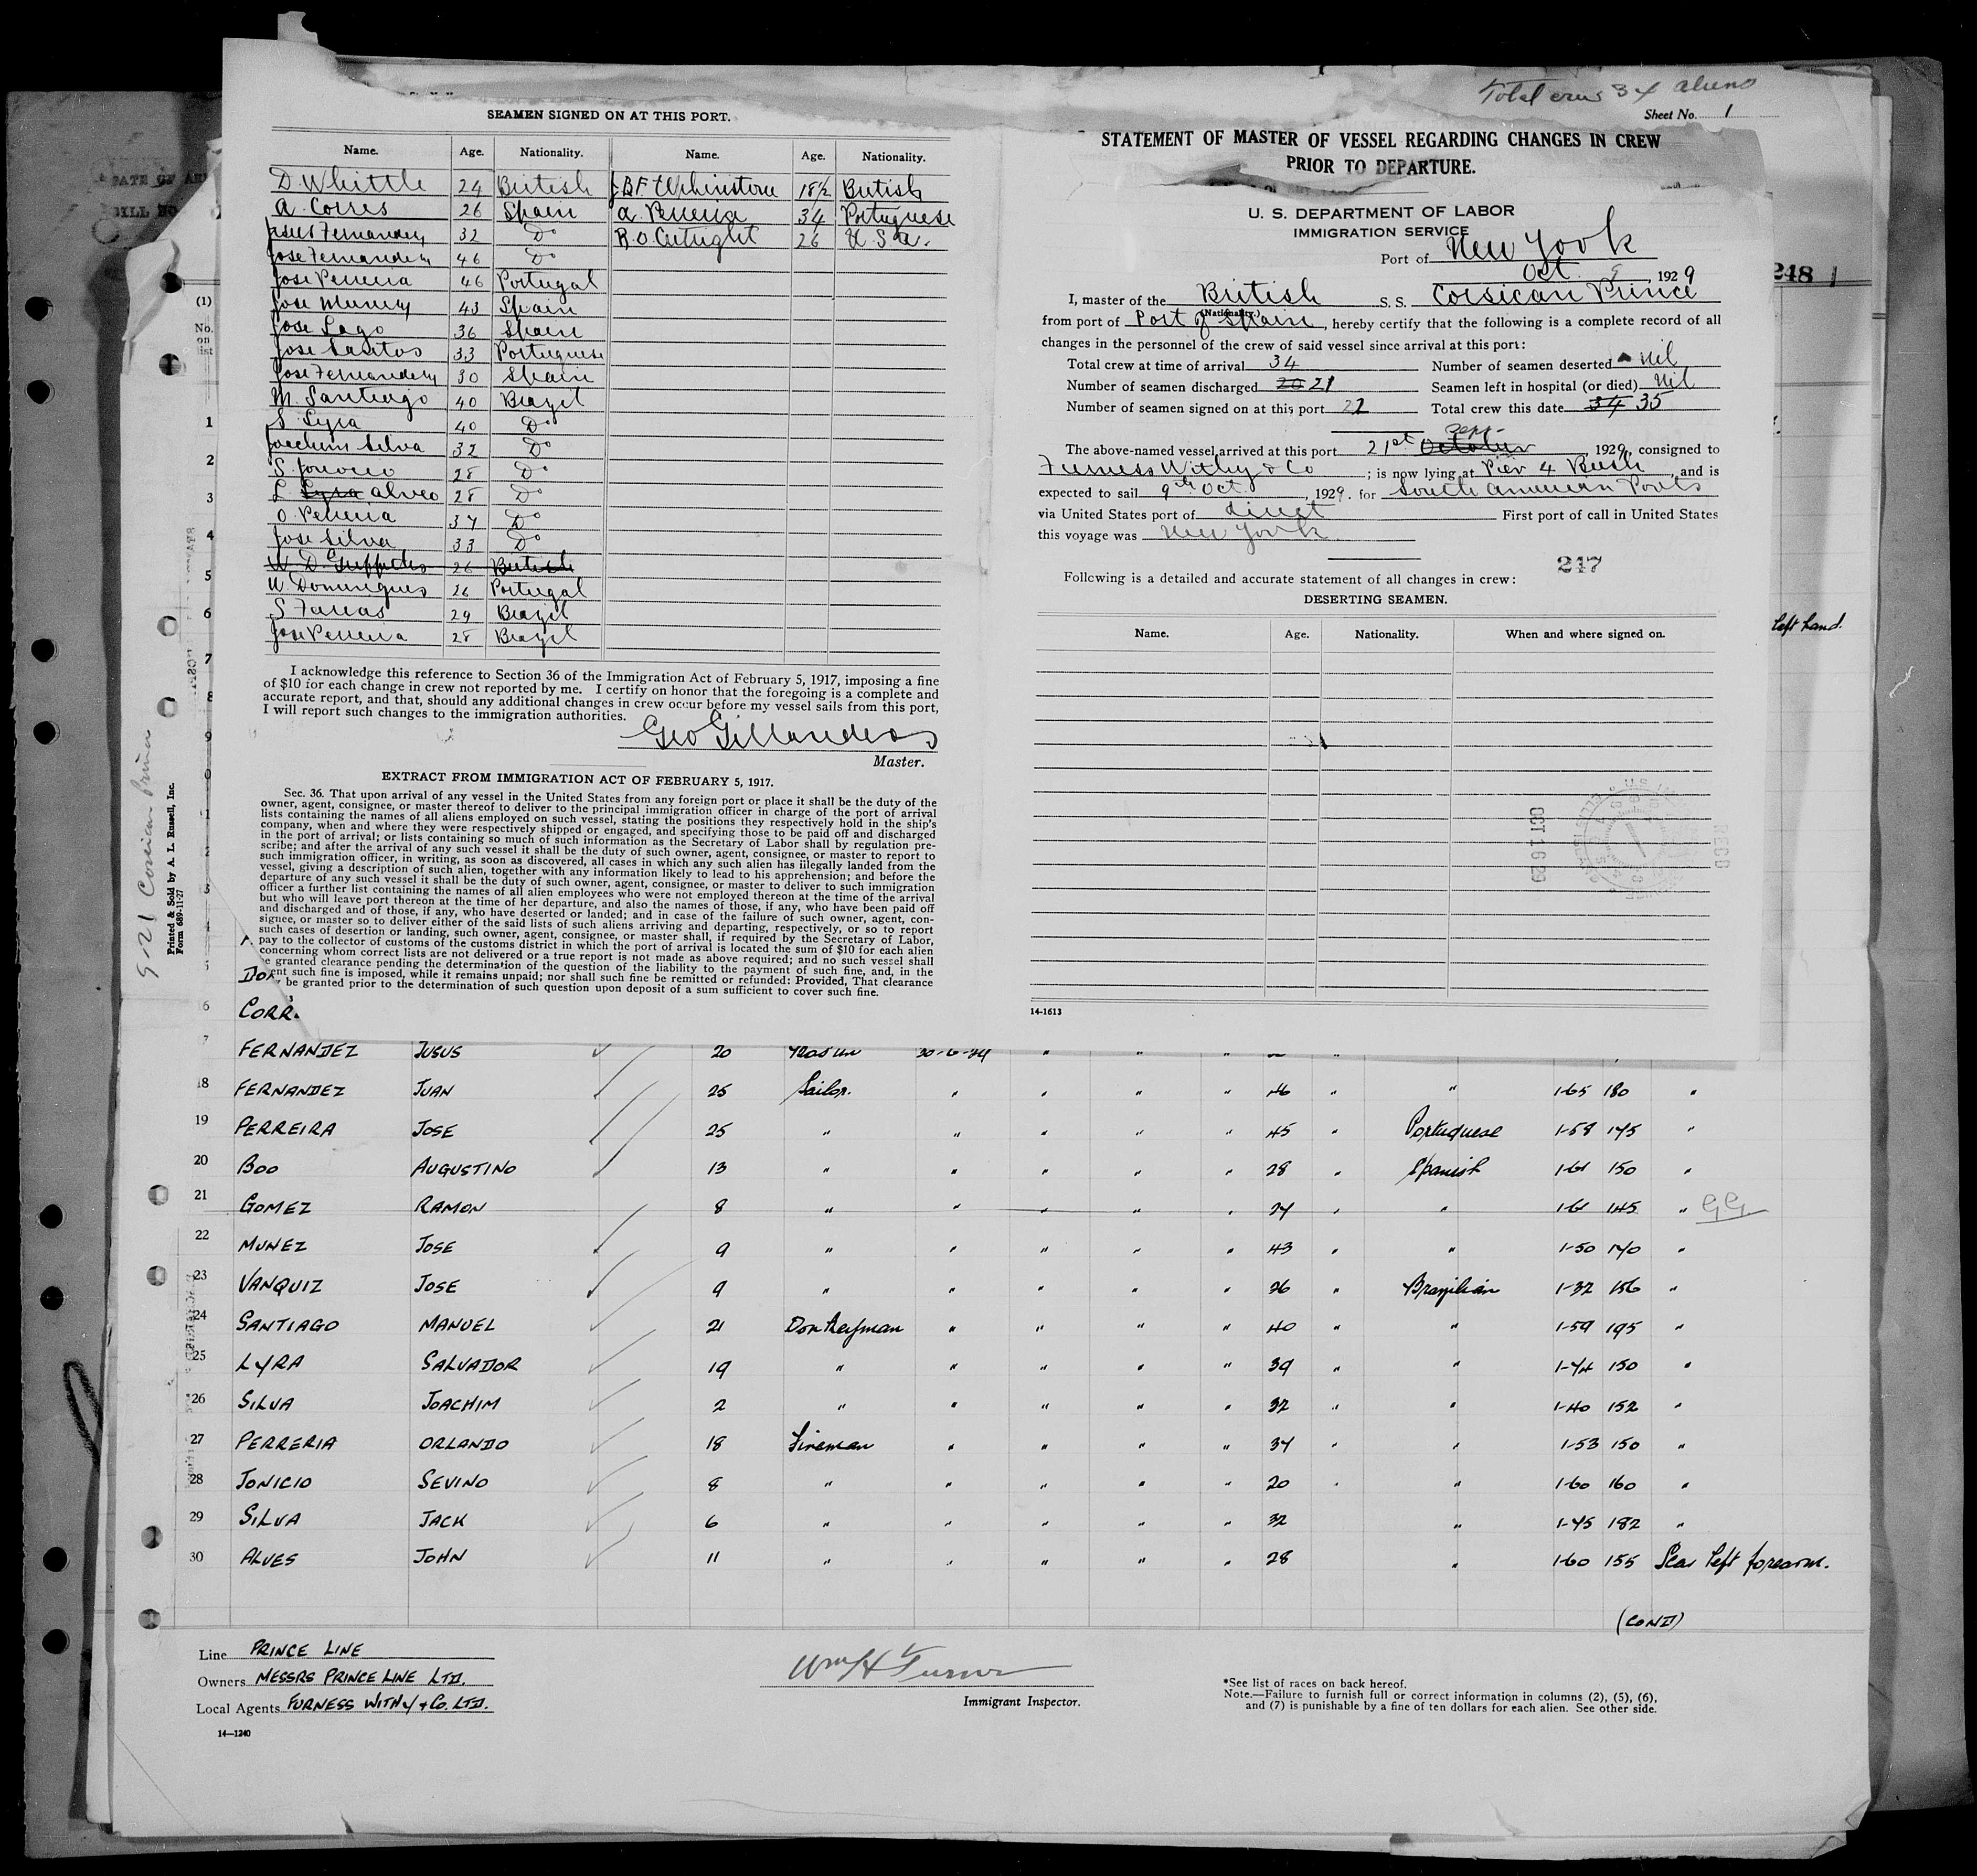 Total crew 34 aliens
SEAMEN SIGNED ON AT THIS PORT.
Name. Age. Nationality. Name. Age. Nationality.
D Whittle 24 British J.B.F. Whinstone 18½ British
A. Corres 26 Spain A. Perreria 34 Portuguese
Jesus Fernandez 32 Do R.O. Cutright 26 U.S.A.
Jose Fernandez 46 Do
Jose Perreria 46 Portugal
Jose Munez 43 Spain
Jose Lago 36 Spain
Jose Santos 33 Portuguese
Jose Fernandez 30 Spain
M. Santiago 40 Brazil
S Lyra 40 Do
Joachim Silva 32 Do
S. 28 Do
L Lyra Alveo 28 Do
O. Perreria 34 Do
Jose Silva 33 Do
W. D. Griffiths 26 British
Domingues 26 Portugal
S Farias 29 Brazil
Jose Perreria 28 Brazil
I acknowledge this reference to Section 36 of the Immigration Act of February 5, 1917, imposing a fine
of $10 for each change in crew not reported by me. I certify on honor that the foregoing is a complete and
accurate report, and that, should any additional changes in crew occur before my vessel sails from this port,
I will report such changes to the immigration authorities.
Geo Gillanders
Master.
EXTRACT FROM IMMIGRATION ACT OF FEBRUARY 5, 1917.
Sec. 36. That upon arrival of any vessel in the United States from any foreign port or place it shall be the duty of the
owner, agent, consignee, or master thereof to deliver to the principal immigration officer in charge of the port of arrival
lists containing the names of all aliens employed on such vessel, stating the positions they respectively hold in the ship's
company, when and where they were respectively shipped or engaged, and specifying those to be paid off and discharged
in the port of arrival; or lists containing so much of such information as the Secretary of Labor shall by regulation pre-
scribe; and after the arrival of any such vessel it shall be the duty of such owner, agent, consignee, or master to report to
such immigration officer, in writing, as soon as discovered, all cases in which any such alien has illegally landed from the
vessel, giving a description of such alien, together with any information likely to lead to his apprehension; and before the
departure of any such vessel it shall be the duty of such owner, agent, consignee, or master to deliver to such immigration
officer a further list containing the names of all alien employees who were not employed thereon at the time of the arrival
but who will leave port thereon at the time of her departure, and also the names of those, if any, who have been paid off
and discharged and of those, if any, who have deserted or landed; and in case of the failure of such owner, agent, con-
signee, or master so to deliver either of the said lists of such aliens arriving and departing, respectively, or so to report
such cases of desertion or landing, such owner, agent, consignee, or master shall, if required by the Secretary of Labor,
pay to the collector of customs of the customs district in which the port of arrival is located the sum of $10 for each alien
concerning whom correct lists are not delivered or a true report is not made as above required; and no such vessel shall
be granted clearance pending the determination of the question of the liability to the payment of such fine, and, in the
ent such fine is imposed, while it remains unpaid; nor shall such fine be remitted or refunded: Provided, That clearance
be granted prior to the determination of such question upon deposit of a sum sufficient to cover such fine.
Sheet No. 1
STATEMENT OF MASTER OF VESSEL REGARDING CHANGES IN CREW
PRIOR TO DEPARTURE.
U. S. DEPARTMENT OF LABOR
IMMIGRATION SERVICE
Port of New York
Oct. 9, 1929
I, master of the British S. S. Corsican Prince
(Nationality.)
from port of Port of Spain, hereby certify that the following is a complete record of all
changes in the personnel of the crew of said vessel since arrival at this port:
Total crew at time of arrival 34 Number of seamen deserted nil
Number of seamen discharged 20 21 Seamen left in hospital (or died) Nil
Number of seamen signed on at this port 22 Total crew this date 34 35
Sept-
The above-named vessel arrived at this port 21st October, 1929, consigned to
Furness Withy & Co; is now lying at Pier 4 Bush, and is
expected to sail 9th Oct., 1929. for South American Ports
via United States port of direct First port of call in United States
this voyage was New York
247
Following is a detailed and accurate statement of all changes in crew:
DESERTING SEAMEN.
Name. Age. Nationality. When and where signed on.
OCT 16 29
RECD
14-1613
248 1
left hand.
(1)
No.
on
list
1
2
3
4
5
6
7
8
9
9-21 Corsican Prince
Printed & Sold by A. L. Russell, Inc.
Form 689-11-27
Don
6 CORR.
7 FERNANDEZ JUSUS 20 30-6-29
18 FERNANDEZ JUAN 25 Sailor. " " " " 46 " " 1-65 180 "
19 PERREIRA JOSE 25 " " " " " 45 " Portuguese 1-58 175 "
20 BOO AUGUSTINO 13 " " " " " 28 " Spanish 1-61 150 "
21 GOMEZ RAMON 8 " " " " " 24 " " 1-61 145 " G.G.
22 MUNEZ JOSE 9 " " " " " 43 " " 1-50 140 "
23 VANQUIZ JOSE 9 " " " " " 36 " Brazilian 1-32 156 "
24 SANTIAGO MANUEL 21 Donkeyman " " " " 40 " " 1-59 195 "
25 LYRA SALVADOR 19 " " " " " 39 " " 1-74 150 "
26 SILVA JOACHIM 2 " " " " " 32 " " 1-40 152 "
27 PERRERIA ORLANDO 18 Fireman " " " " 34 " " 1-53 150 "
28 JONICIO SEVINO 8 " " " " " 20 " " 1-60 160 "
29 SILVA JACK 6 " " " " " 32 " 1-45 182 "
30 ALVES JOHN 11 " " " " " 28 " 1-60 155 Scar left forearm.
(CON'D)
Line PRINCE LINE
Owners MESSRS PRINCE LINE LTD.
Local Agents FURNESS WITHY & CO. LTD.
14—1240
Wm H Turner
Immigrant Inspector.
*See list of races on back hereof.
Note.—Failure to furnish full or correct information in columns (2), (5), (6),
and (7) is punishable by a fine of ten dollars for each alien. See other side.